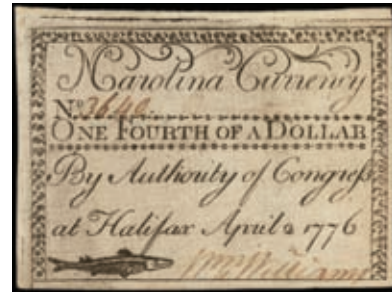 N Carolina Currency
No. 3640.
ONE FOURTH OF A DOLLAR
By Authority of Congress
at Halifax April 2 1776
Wm Williams